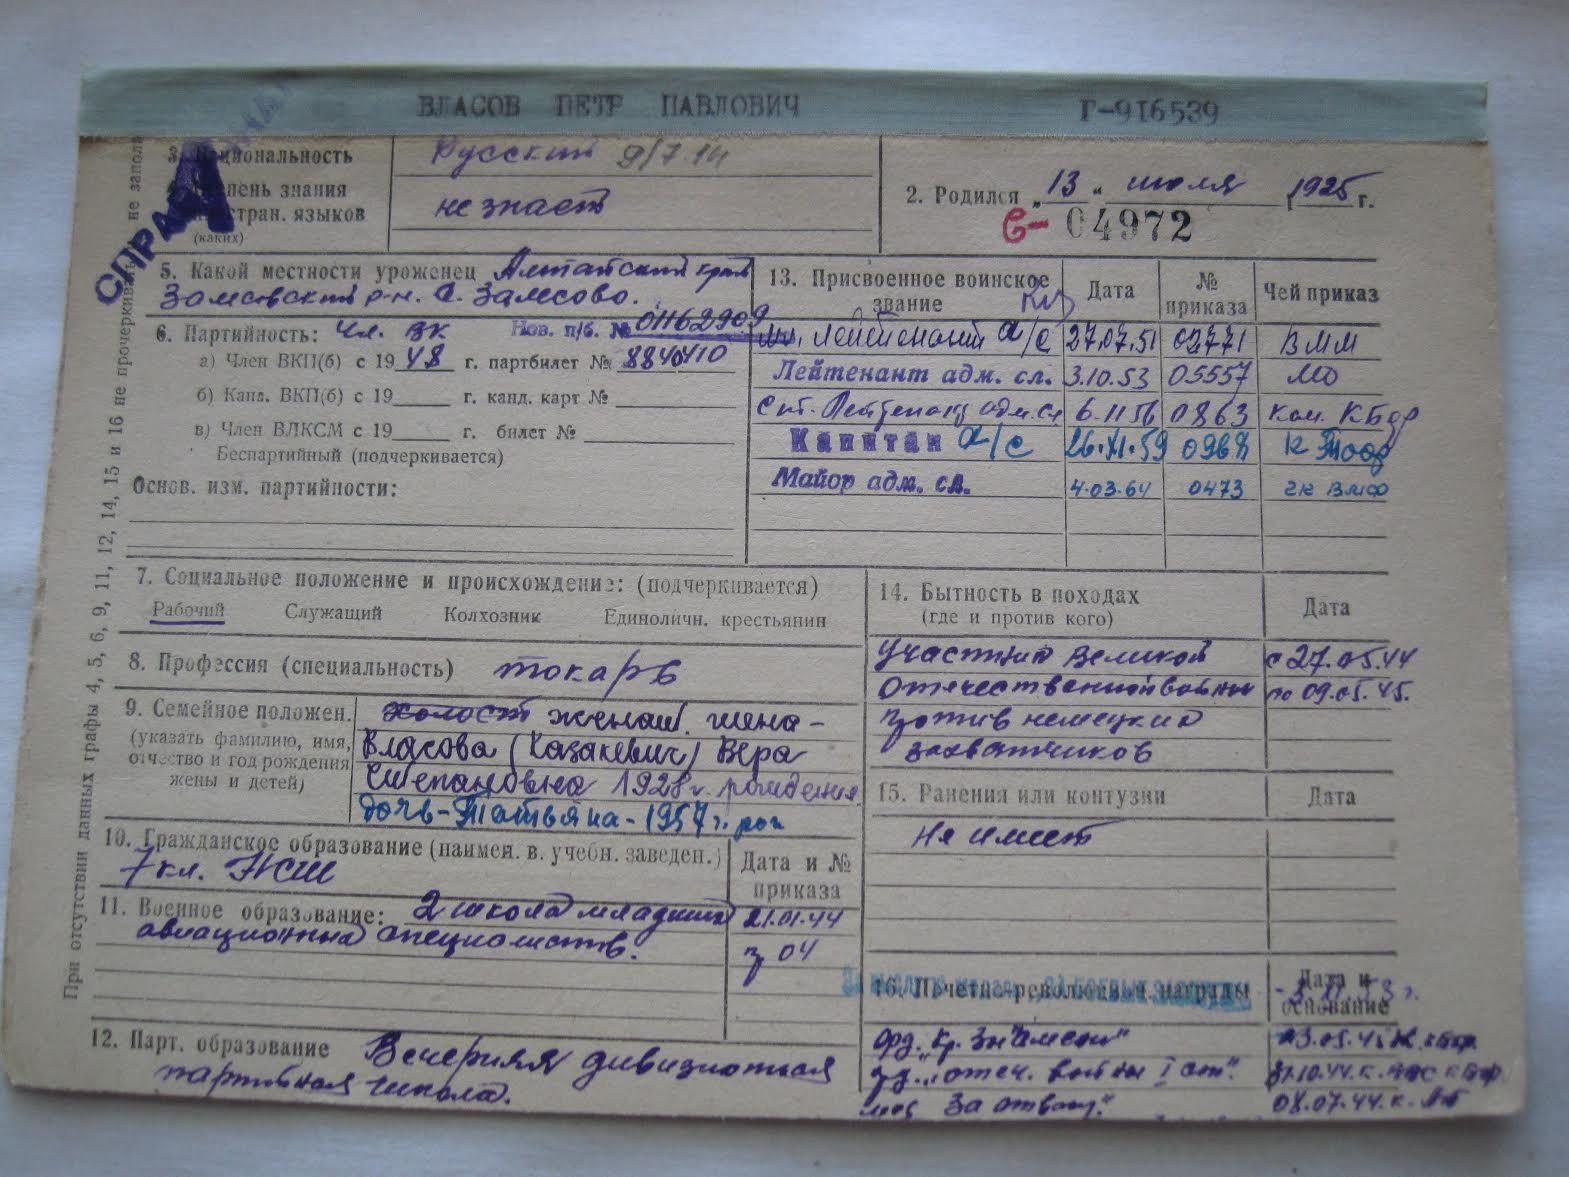 ВЛАСОВ ПЕТР ПАВЛОВИЧ Г-916539
3. Национальность Русский 9/7.14
2. Родился „13" июля 1925 г.
4. Степень знания иностран. языков (каких) не знает
С-04972
СПРА А
5. Какой местности уроженец Алтайский край
Залесовский р-н. с. Залесово.
6. Партийность: Чл. ВК Нов. п/б. № 01162909
а) Член ВКП(б) с 1948 г. партбилет № 8840410
б) Канд. ВКП(б) с 19 г. канд. карт №
в) Член ВЛКСМ с 19 г. билет №
Беспартийный (подчеркивается)
Основ. изм. партийности:
13. Присвоенное воинское звание Дата № приказа Чей приказ
мл. Лейтенант а/с 27.07.51 02771 ВММ
Лейтенант адм. сл. 3.10.53 05557 МО
Ст. Лейтенант адм.сл 6.11.56 0863 ком. КБФ
Капитан а/с 26.XI.59 0968 К
Майор адм. сл. 4.03.64 0473 ГК ВМФ
7. Социальное положение и происхождение: (подчеркивается)
Рабочий Служащий Колхозник Единоличн. крестьянин
8. Профессия (специальность) токарь
9. Семейное положен. (указать фамилию, имя, отчество и год рождения жены и детей)
холост женат. жена -
Власова (Казакевич) Вера
Степановна 1928 г. рождения
дочь-Татьяна-1957 г. рож
10. Гражданское образование (наимен. в. учебн. заведен.)
7 кл. НСШ
Дата и № приказа
11. Военное образование: 2 школа младших 21.01.44
авиационных специалистов. 04
12. Парт. образование Вечерняя дивизионная
партийная школа.
14. Бытность в походах (где и против кого) Дата
Участник Великой с 27.05.44
Отечественной войны по 09.05.45.
против немецких
захватчиков
15. Ранения или контузии Дата
Не имеет
16. Почетно-революционн. награды Дата и основание
орд. „Кр. Знамени"
орд. „Отеч. войны I ст".
мед „За отвагу." 08.07.44.
При отсутствии данных графы 4, 5, 6, 9, 11, 12, 14, 15 и 16 не прочеркивать, не запола